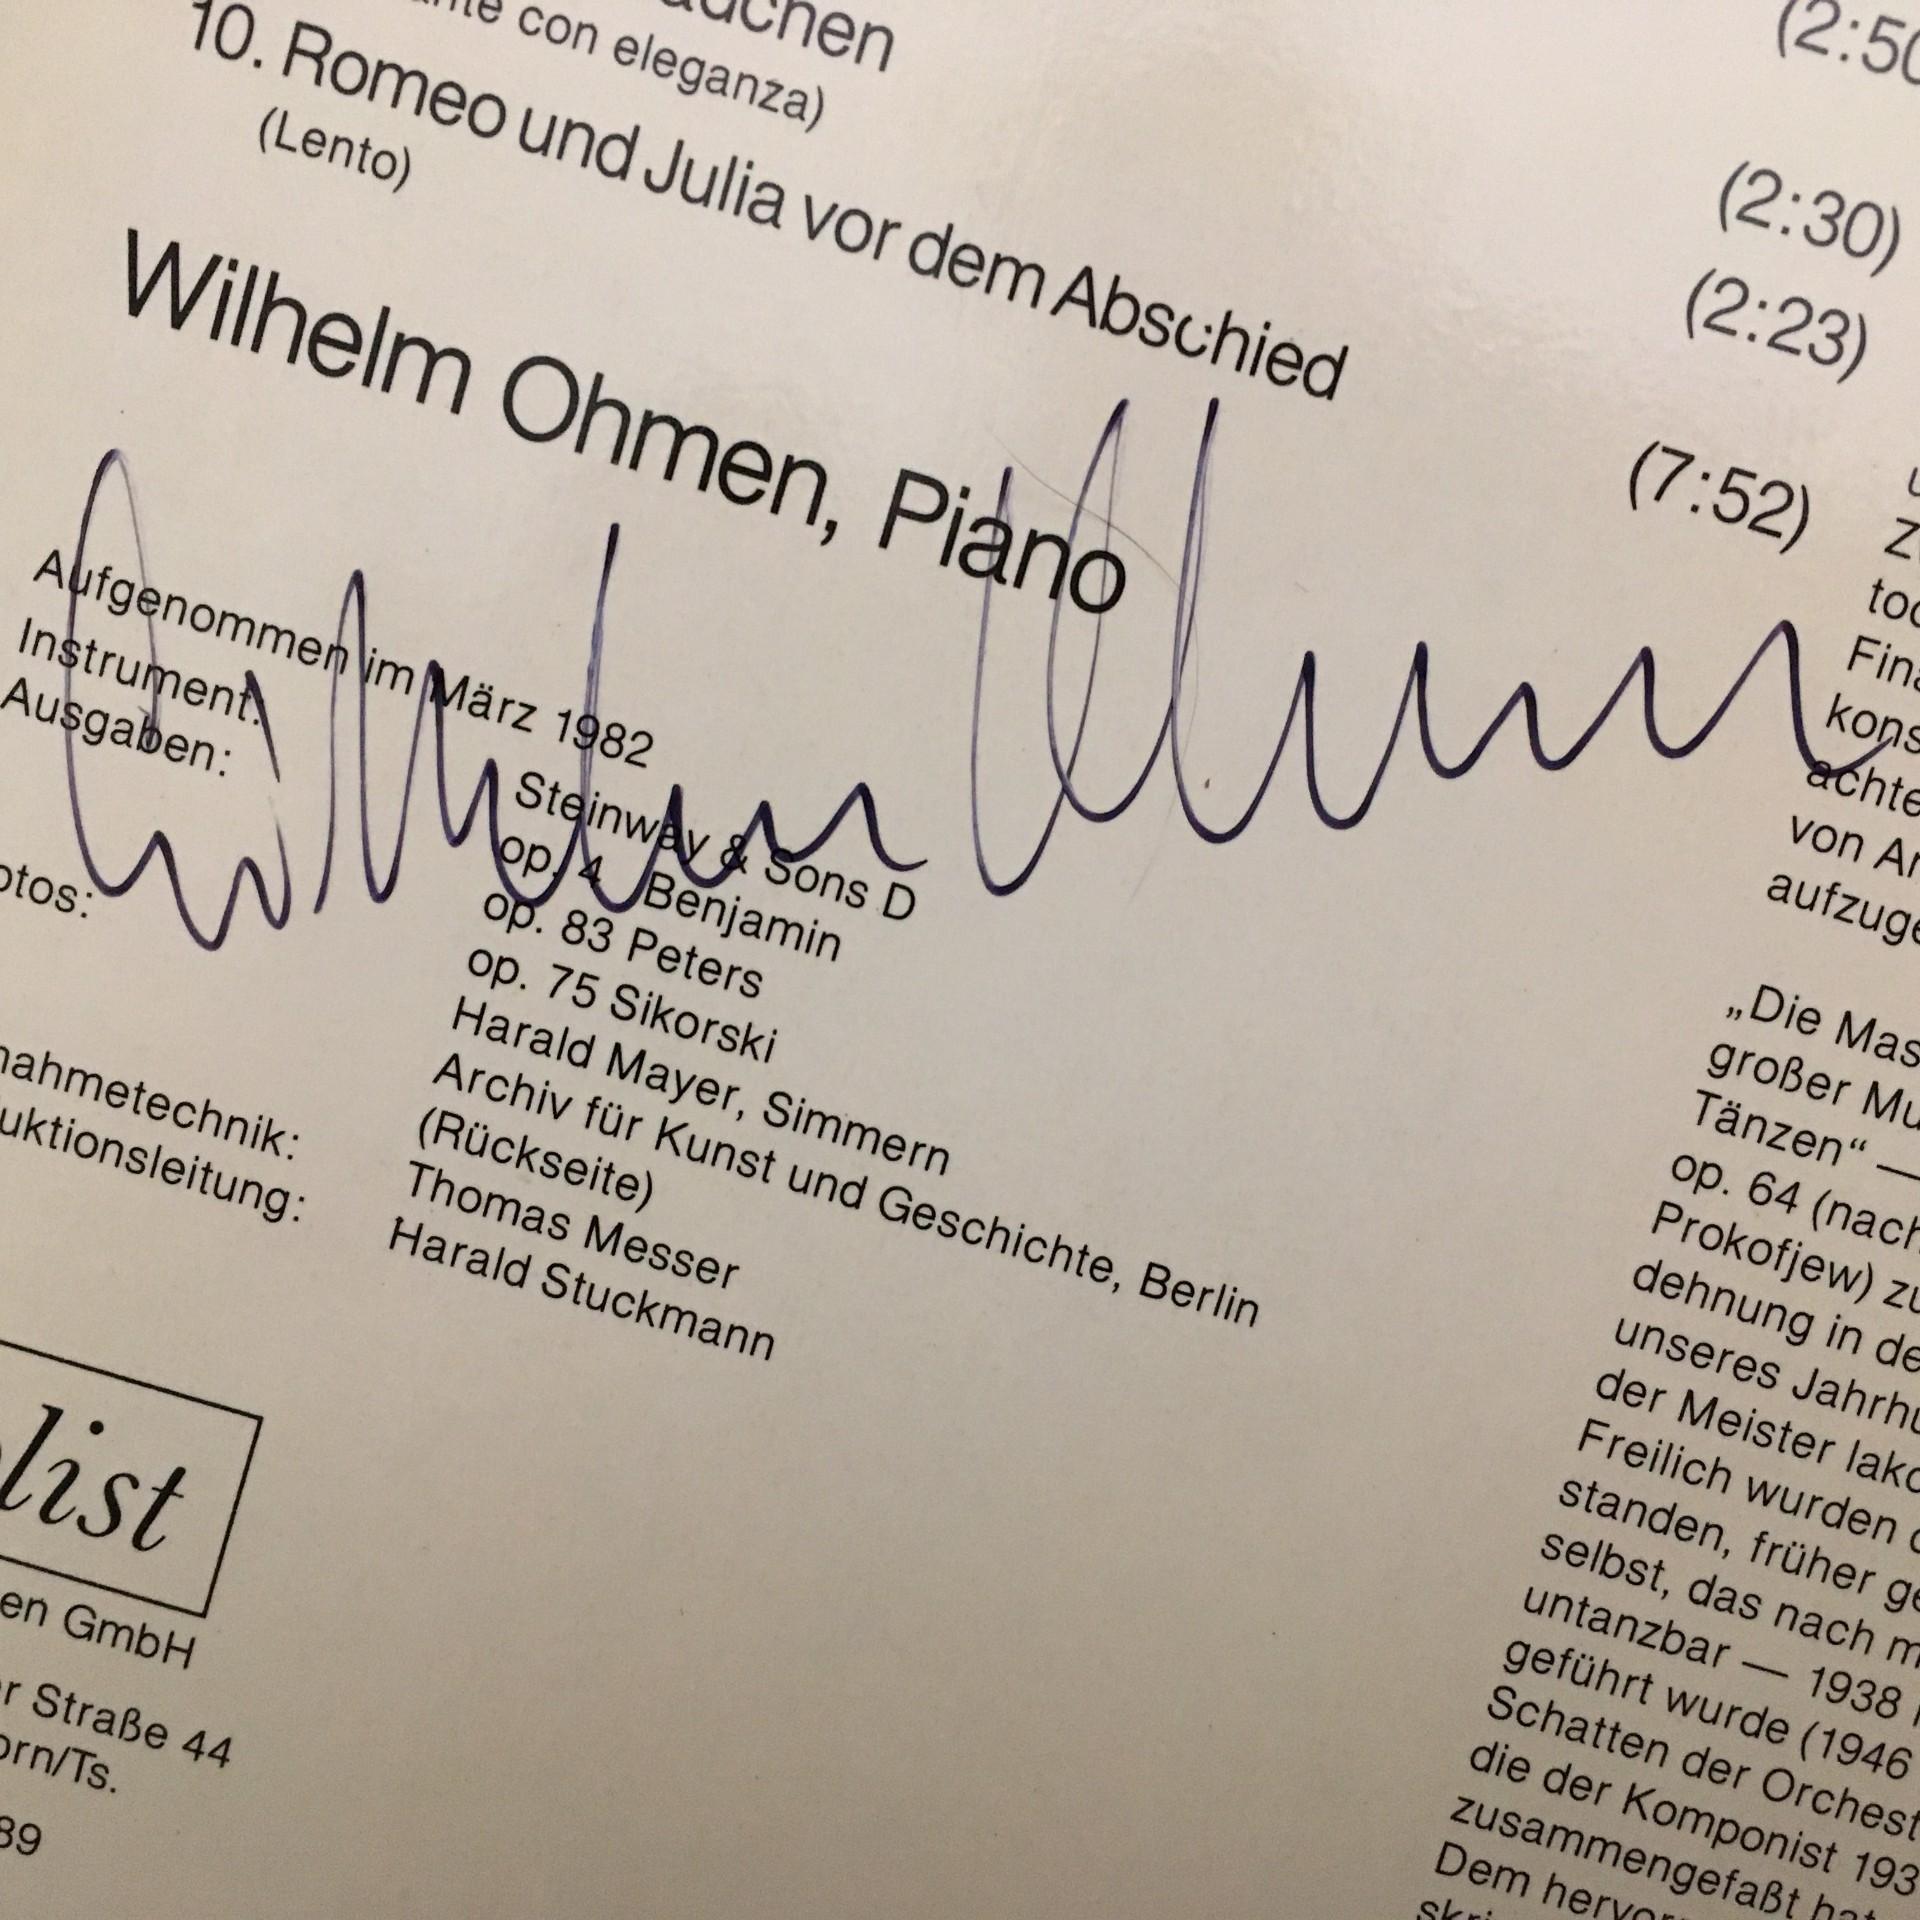 con eleganza)
(2:50
10. Romeo und Julia vor dem Abschied
(Lento)
(2:30)
(2:23)
(7:52)
Wilhelm Ohmen, Piano
Aufgenommen im März 1982
Instrument: Steinway & Sons D
Ausgaben: op. 4 Benjamin
op. 83 Peters
op. 75 Sikorski
otos: Harald Mayer, Simmern
Archiv für Kunst und Geschichte, Berlin
(Rückseite)
nahmetechnik: Thomas Messer
uktionsleitung: Harald Stuckmann
list
en GmbH
r Straße 44
orn/Ts.
89
Wilhelm Ohmen
kons
achte
von Ar
aufzuge
„Die Mas
großer Mu
Tänzen“ —
op. 64 (nach
Prokofjew) zu
dehnung in de
unseres Jahrhu
der Meister lako
Freilich wurden
standen, früher ge
selbst, das nach m
untanzbar — 1938
geführt wurde (1946
Schatten der Orchest
die der Komponist 193
zusammengefaßt hat
Dem hervor